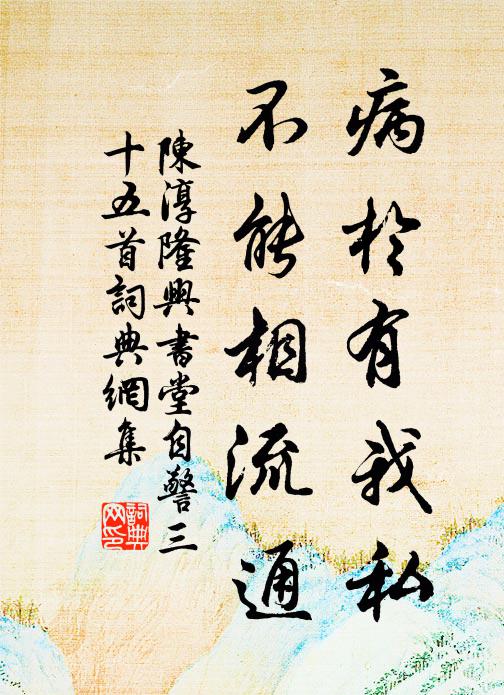 病於有我私
不能相流通
陳淳隆興書堂自警三
十五首詞典網集
詞典
网印